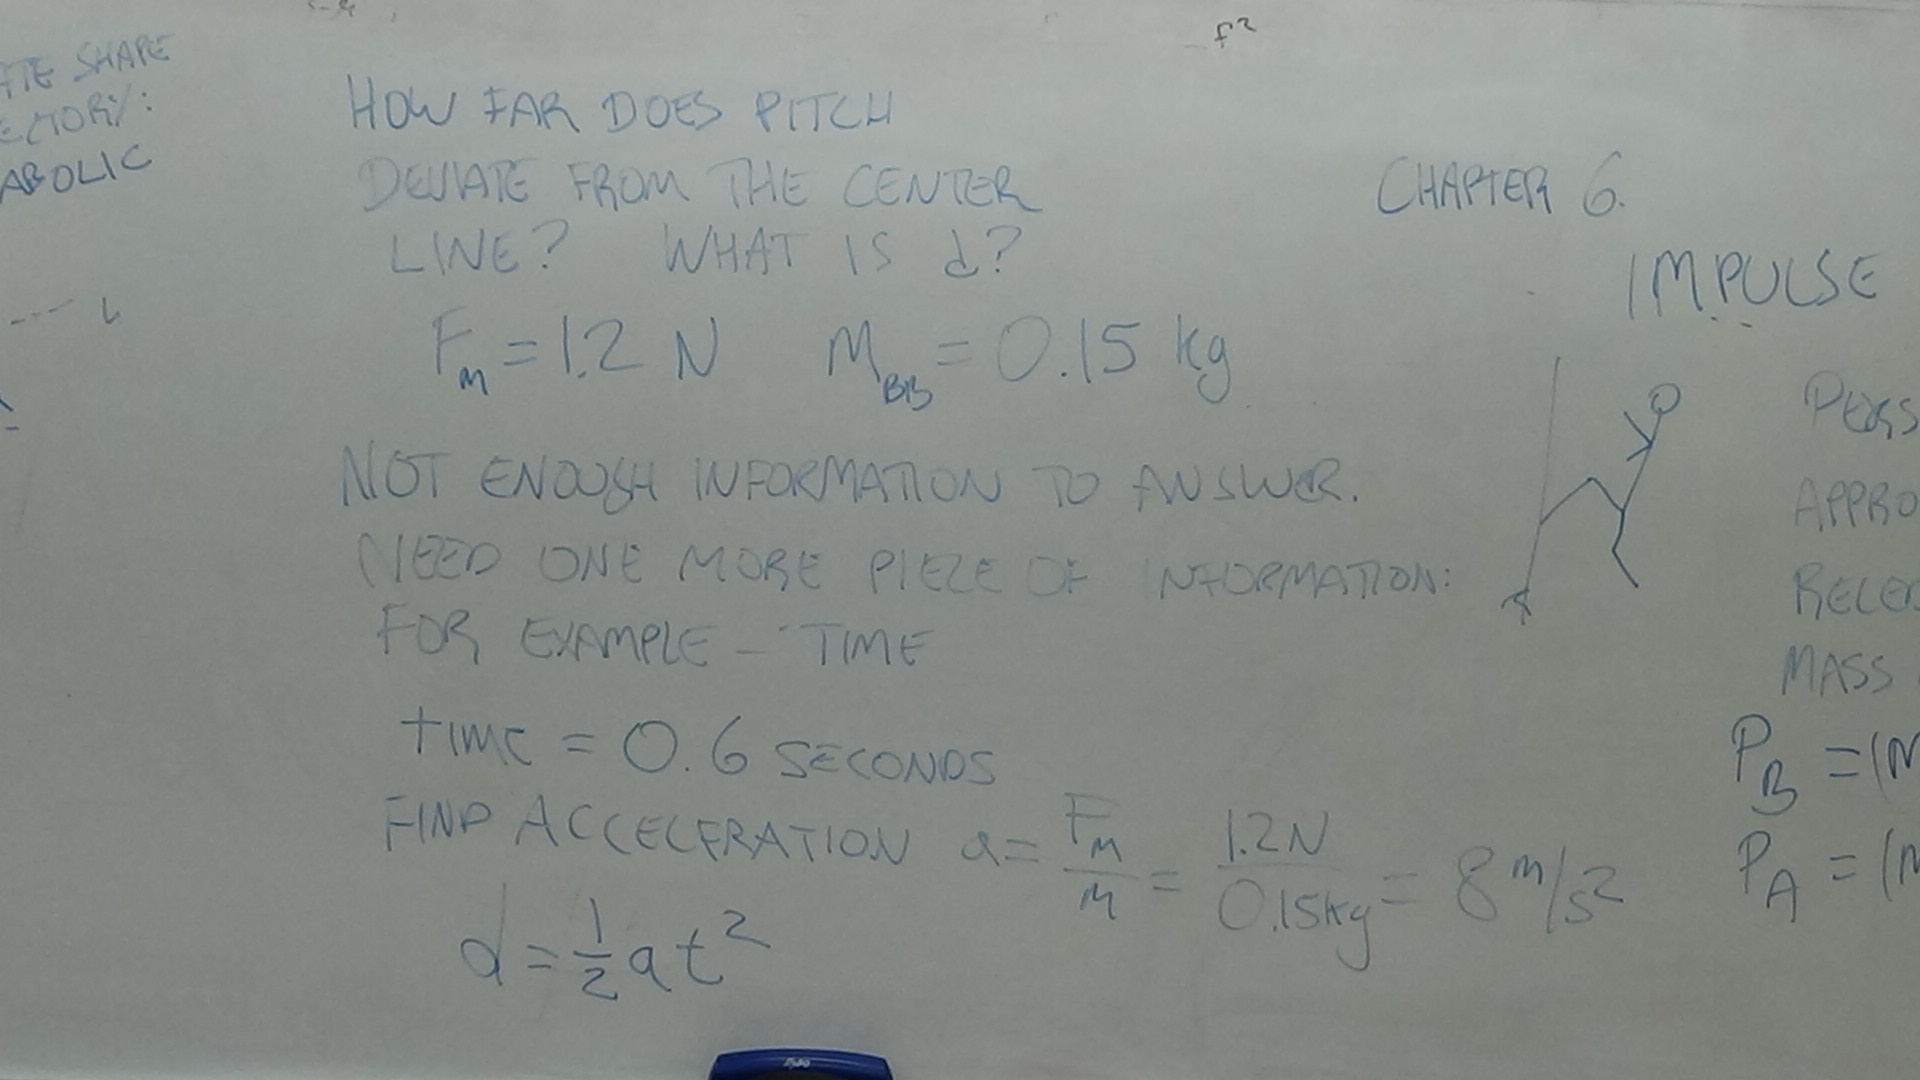 SHAPE
HOW FAR DOES PITCH
DEVIATE FROM THE CENTER
LINE? WHAT IS d?
F_m = 1.2 N M_BB = 0.15 kg
NOT ENOUGH INFORMATION TO ANSWER.
NEED ONE MORE PIECE OF INFORMATION:
FOR EXAMPLE - TIME
TIME = 0.6 SECONDS
FIND ACCELERATION a = F_m/m = 1.2N/0.15kg = 8 m/s²
d = 1/2 at²
CHAPTER 6.
IMPULSE
MASS
P_B = (M
P_A = (M